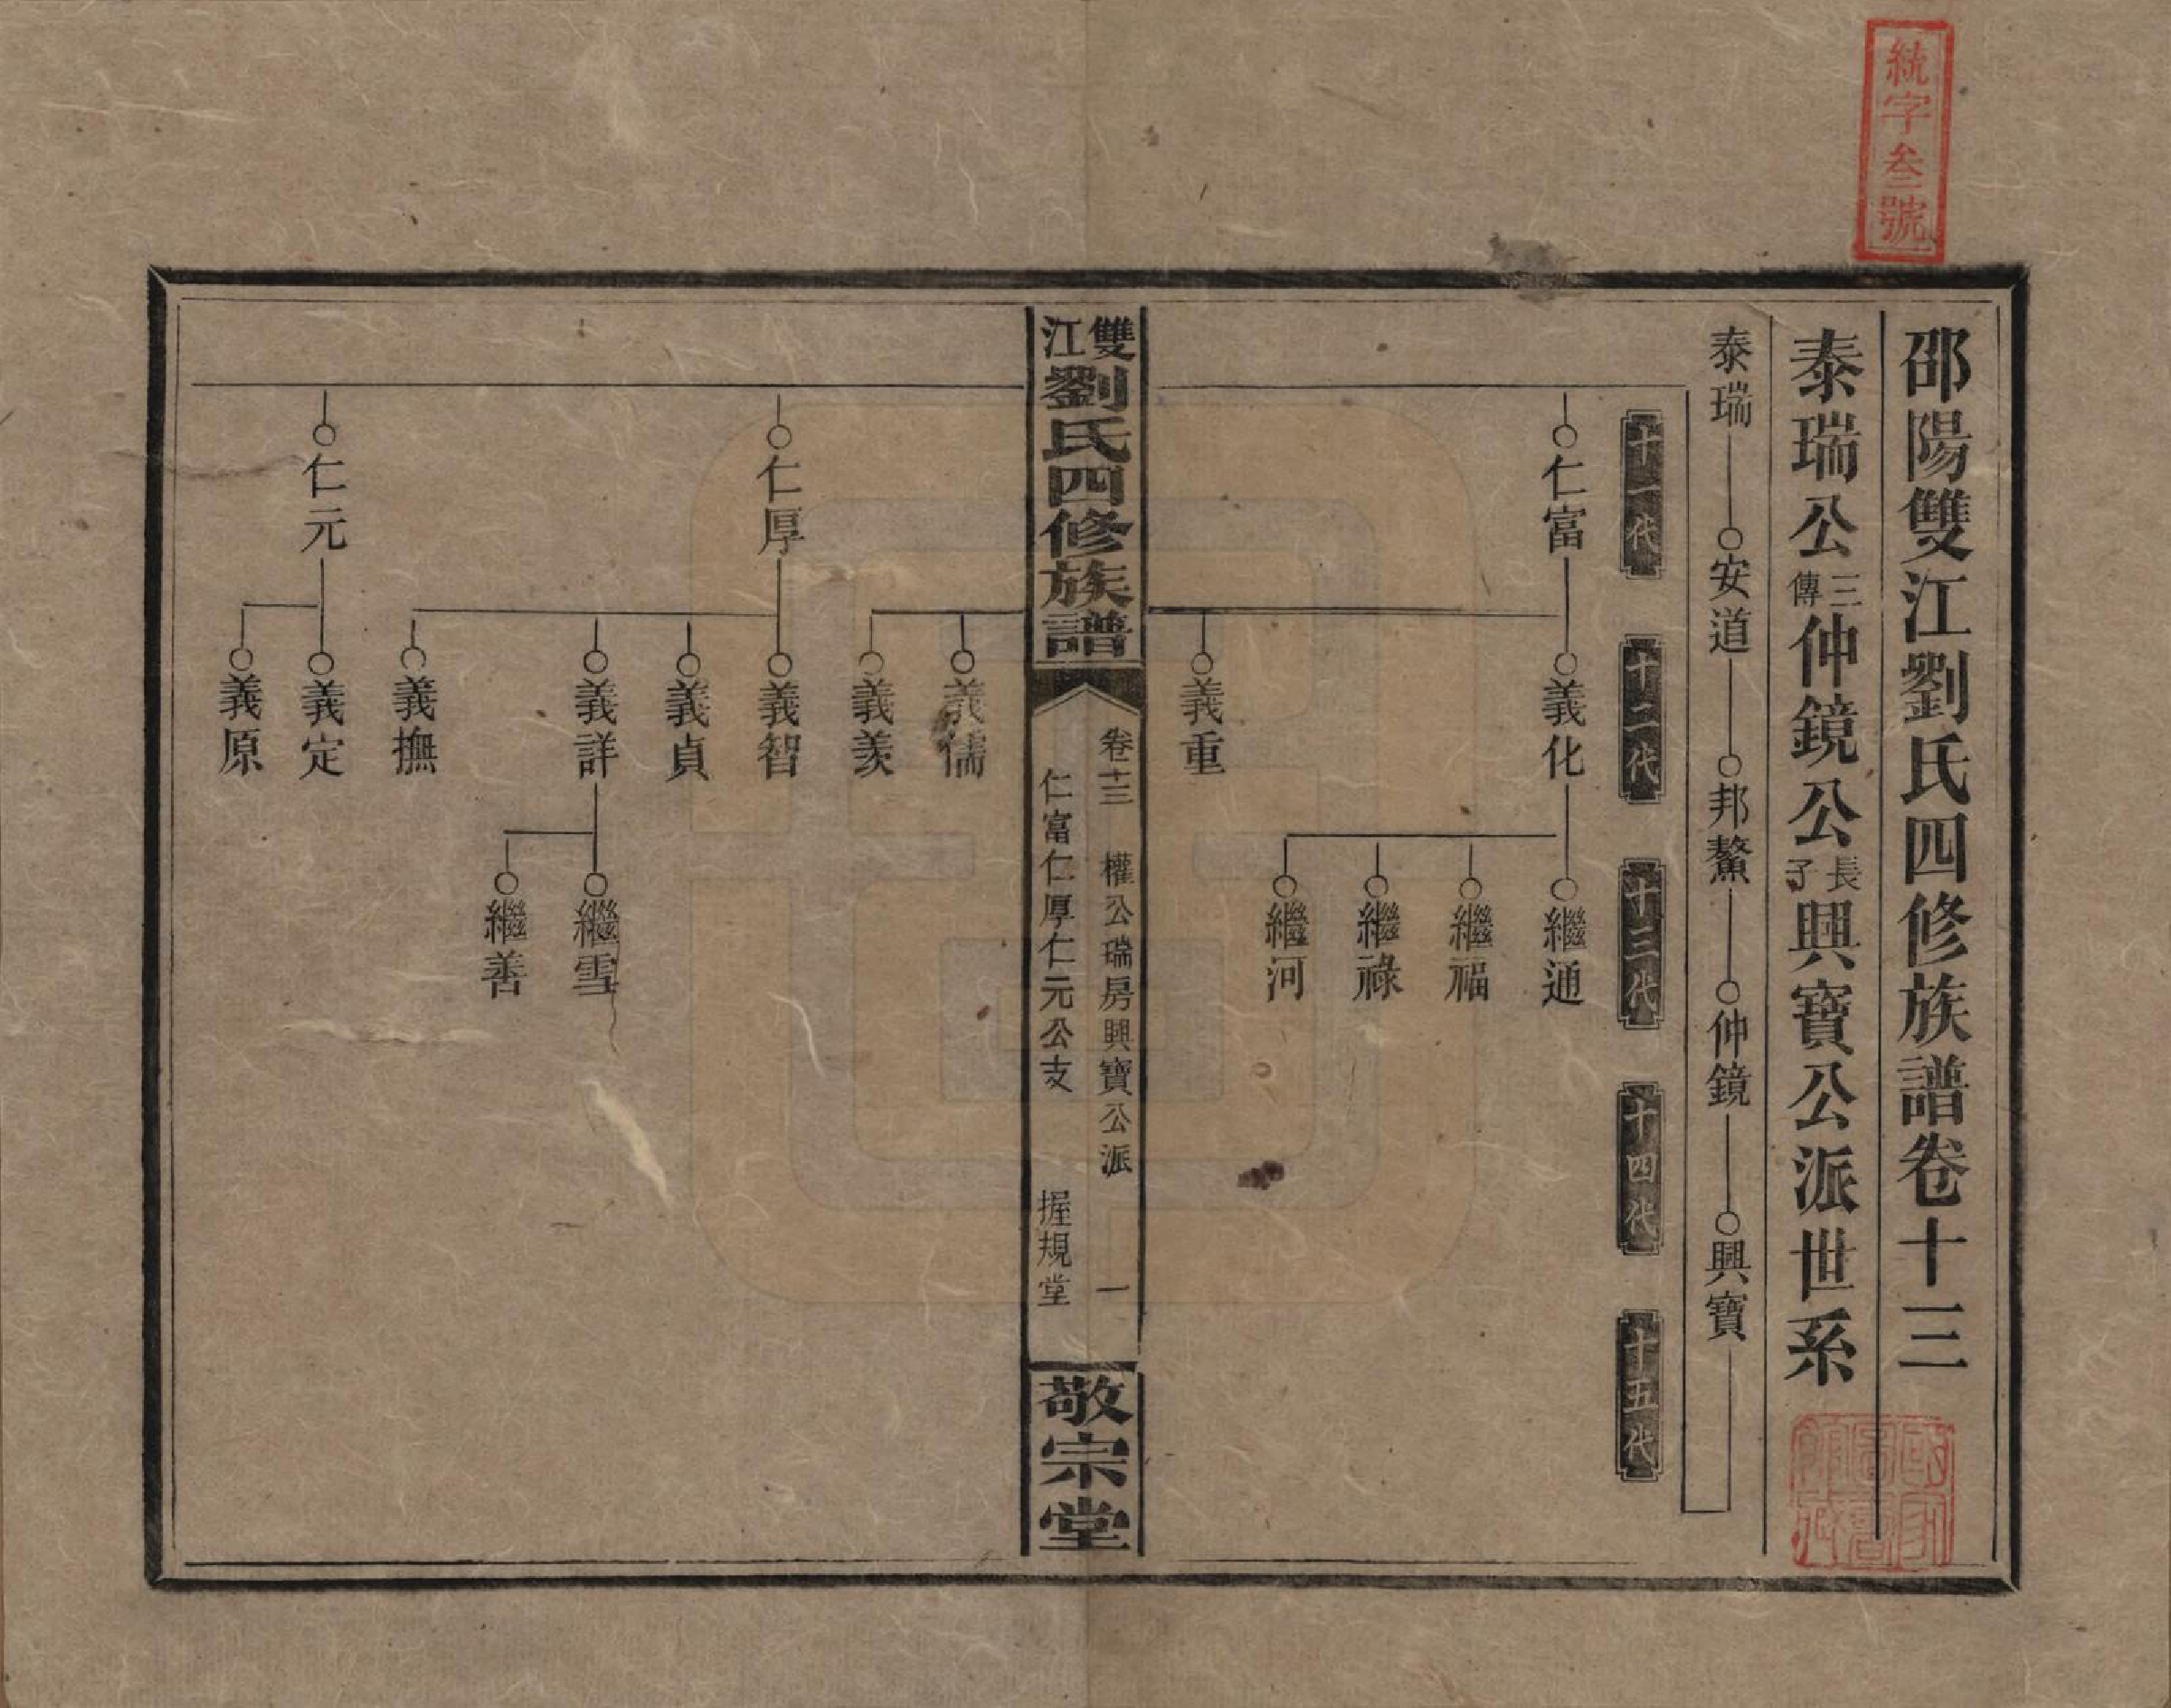 統字叁號
邵陽雙江劉氏四修族譜卷十三
泰瑞公三傳仲鏡公長子興寶公派世系
泰瑞 安道 邦鰲 仲鏡 興寶
十一代 十二代 十三代 十四代 十五代
仁富 義化 繼通
繼福
繼祿
繼河
義重
雙江劉氏四修族譜
卷十三 權公瑞房興寶公派 一
仁富仁厚仁元公支 握規堂
敬宗堂
義儒
義羨
仁厚 義智
義貞
義詳 繼雪
繼善
義撫
仁元 義定
義原